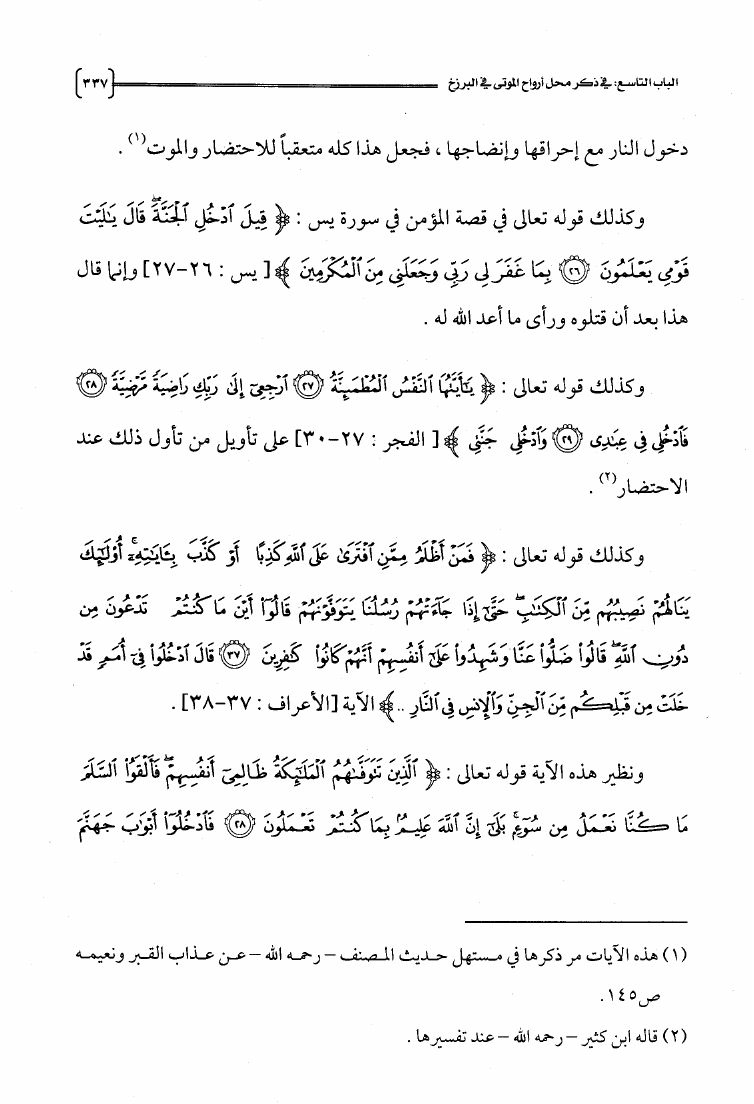 الباب التاسع: في ذكر محل أرواح الموتى في البرزخ [٣٣٧]
دخول النار مع إحراقها وإنضاجها ، فجعل هذا كله متعقباً للاحتضار والموت(١) .
وكذلك قوله تعالى في قصة المؤمن في سورة يس : ﴿ قِيلَ ٱدْخُلِ ٱلْجَنَّةَ ۖ قَالَ يَٰلَيْتَ
قَوْمِى يَعْلَمُونَ ۝٢٦ بِمَا غَفَرَ لِى رَبِّى وَجَعَلَنِى مِنَ ٱلْمُكْرَمِينَ ﴾ [ يس : ٢٦-٢٧] وإنما قال
هذا بعد أن قتلوه ورأى ما أعد الله له .
وكذلك قوله تعالى : ﴿ يَٰٓأَيَّتُهَا ٱلنَّفْسُ ٱلْمُطْمَئِنَّةُ ۝٢٧ ٱرْجِعِىٓ إِلَىٰ رَبِّكِ رَاضِيَةً مَّرْضِيَّةً ۝٢٨
فَٱدْخُلِى فِى عِبَٰدِى ۝٢٩ وَٱدْخُلِى جَنَّتِى ﴾ [ الفجر : ٢٧-٣٠] على تأويل من تأول ذلك عند
الاحتضار(٢) .
وكذلك قوله تعالى : ﴿ فَمَنْ أَظْلَمُ مِمَّنِ ٱفْتَرَىٰ عَلَى ٱللَّهِ كَذِبًا أَوْ كَذَّبَ بِـَٔايَٰتِهِۦٓ ۚ أُو۟لَٰٓئِكَ
يَنَالُهُمْ نَصِيبُهُم مِّنَ ٱلْكِتَٰبِ ۖ حَتَّىٰٓ إِذَا جَآءَتْهُمْ رُسُلُنَا يَتَوَفَّوْنَهُمْ قَالُوٓا۟ أَيْنَ مَا كُنتُمْ تَدْعُونَ مِن
دُونِ ٱللَّهِ ۖ قَالُوا۟ ضَلُّوا۟ عَنَّا وَشَهِدُوا۟ عَلَىٰٓ أَنفُسِهِمْ أَنَّهُمْ كَانُوا۟ كَٰفِرِينَ ۝٣٧ قَالَ ٱدْخُلُوا۟ فِىٓ أُمَمٍ قَدْ
خَلَتْ مِن قَبْلِكُم مِّنَ ٱلْجِنِّ وَٱلْإِنسِ فِى ٱلنَّارِ ..﴾ الآية [الأعراف : ٣٧-٣٨] .
ونظير هذه الآية قوله تعالى : ﴿ ٱلَّذِينَ تَتَوَفَّىٰهُمُ ٱلْمَلَٰٓئِكَةُ ظَالِمِىٓ أَنفُسِهِمْ ۖ فَأَلْقَوُا۟ ٱلسَّلَمَ
مَا كُنَّا نَعْمَلُ مِن سُوٓءٍۭ ۚ بَلَىٰٓ إِنَّ ٱللَّهَ عَلِيمٌۢ بِمَا كُنتُمْ تَعْمَلُونَ ۝٢٨ فَٱدْخُلُوٓا۟ أَبْوَٰبَ جَهَنَّمَ
(١) هذه الآيات مر ذكرها في مستهل حديث المصنف – رحمه الله – عن عذاب القبر ونعيمه
ص١٤٥.
(٢) قاله ابن كثير – رحمه الله – عند تفسيرها .